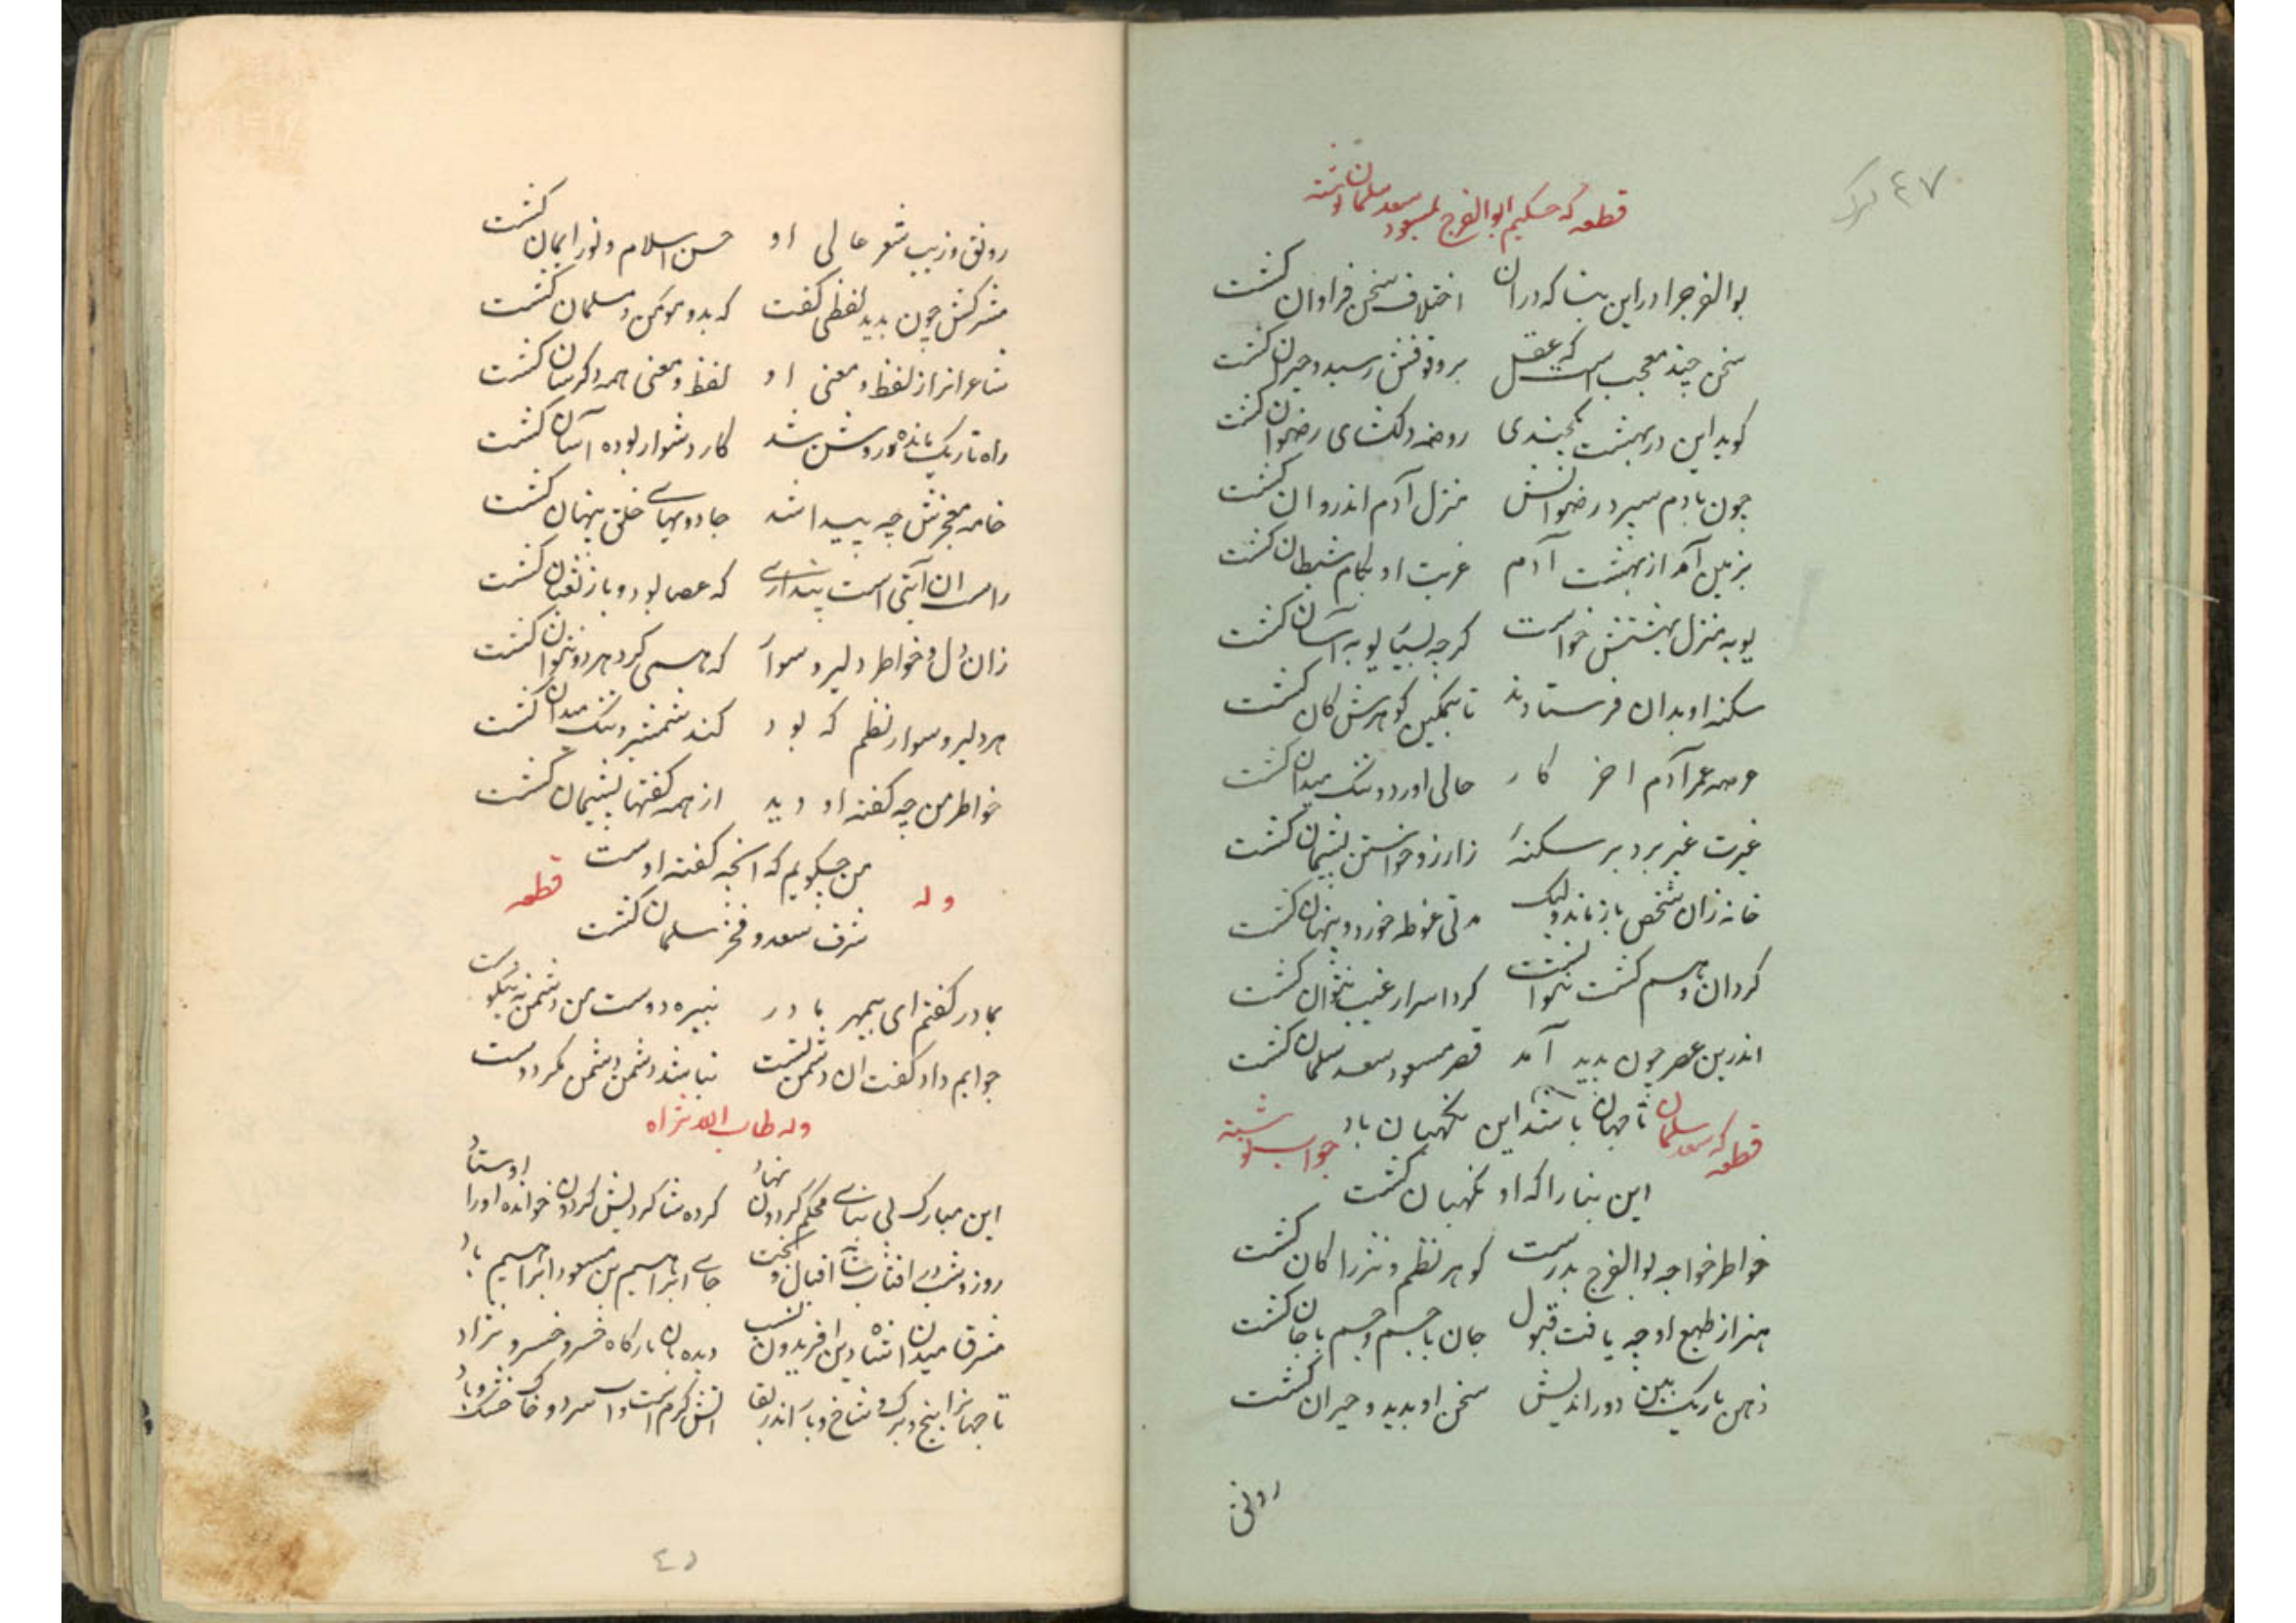 ٤٧
قطعه که حکیم ابوالفرج بمسعود سعد سلمان نوشته
بوالفرجرا در این بنا که دران اختلاف سخن فراوان کشت
سخن چند معجب است که عقل بر وقوفش رسید و حیران کشت
کوید این در بهشت یکچندی روضه دلکشای رضوان کشت
چون بادم سپرد رضوانش منزل آدم اندر و ان کشت
بزمین آمد از بهشت آدم غربت او بکام شیطان کشت
بویه منزل بهشتش خواست کرچه بسیار بویه آسان کشت
سکنه او بدان فرستادند تا بتمکین کوهرش کان کشت
عرصه عمر آدم اخر کار حالی اورد و تنک میدان کشت
غیرت غیر برد بر سکنه زارزو خواستن پشیمان کشت
خانه زان شخص باز ماند ولیک مدتی غوطه خورد و پنهان کشت
کردان وهم کشت نتوانست کرد اسرار غیب نتوان کشت
اندرین عصر چون بدید آمد قصر مسعود سعد سلمان کشت
تا جهان باشد این نکهبان باد
قطعه که سعد سلمان جواب نوشته
این بنا را که او نکهبان کشت
خواطر خواجه بوالفرج بدرست کوهر نظم و نثر را کان کشت
هنر از طبع او چه یافت قبول جان با جسم و جسم با جان کشت
ذهن باریک بین دور اندیش سخن او بدید و حیران کشت
رونق
رونق و زیب شعر عالی او حسن اسلام و نور ایمان کشت
مشرکش چون بدید لفظی کفت که بدو مؤمن و مسلمان کشت
شاعرانرا ز لفظ و معنی او لفظ و معنی همه دکرسان کشت
راه تاریک مانده روشن شد کار دشوار بوده آسان کشت
خامه معجزش چه پیدا شد جادوییهای خلق پنهان کشت
راست ان آیتی است پنداری که عصا بود و باز ثعبان کشت
زان دل و خواطر دلیر و سوار که همی کرد هر دو نتوان کشت
هر دلیر و سوار نظم که بود کند شمشیر و تنک میدان کشت
خواطر من چه کفته او دید از همه کفتها پشیمان کشت
من چکویم که انچه کفته اوست
شرف سعد و فخر سلمان کشت
وله قطعه
بمادر کفتم ای بیمهر مادر نبیره دوست من دشمن نه نیکوست
جوابم داد کفت ان دشمن تست نباشد دشمن دشمن مکر دوست
وله طاب الله ثراه
این مبارک پی بنای محکم کردون نهاد کرده شاکردیش کردون خوانده او را اوستاد
روز و شب در افتاب اقبال و بخت جای ابراهیم بن مسعود ابراهیم باد
مشرق میدان شاه این افریدون نسب دیده بان بارکاه خسرو خسرو نژاد
تا جهانرا بیخ و برک و شاخ و بار اندر بقا اتش کرم است و آب سرد و خاک خشک و باد
٤٥